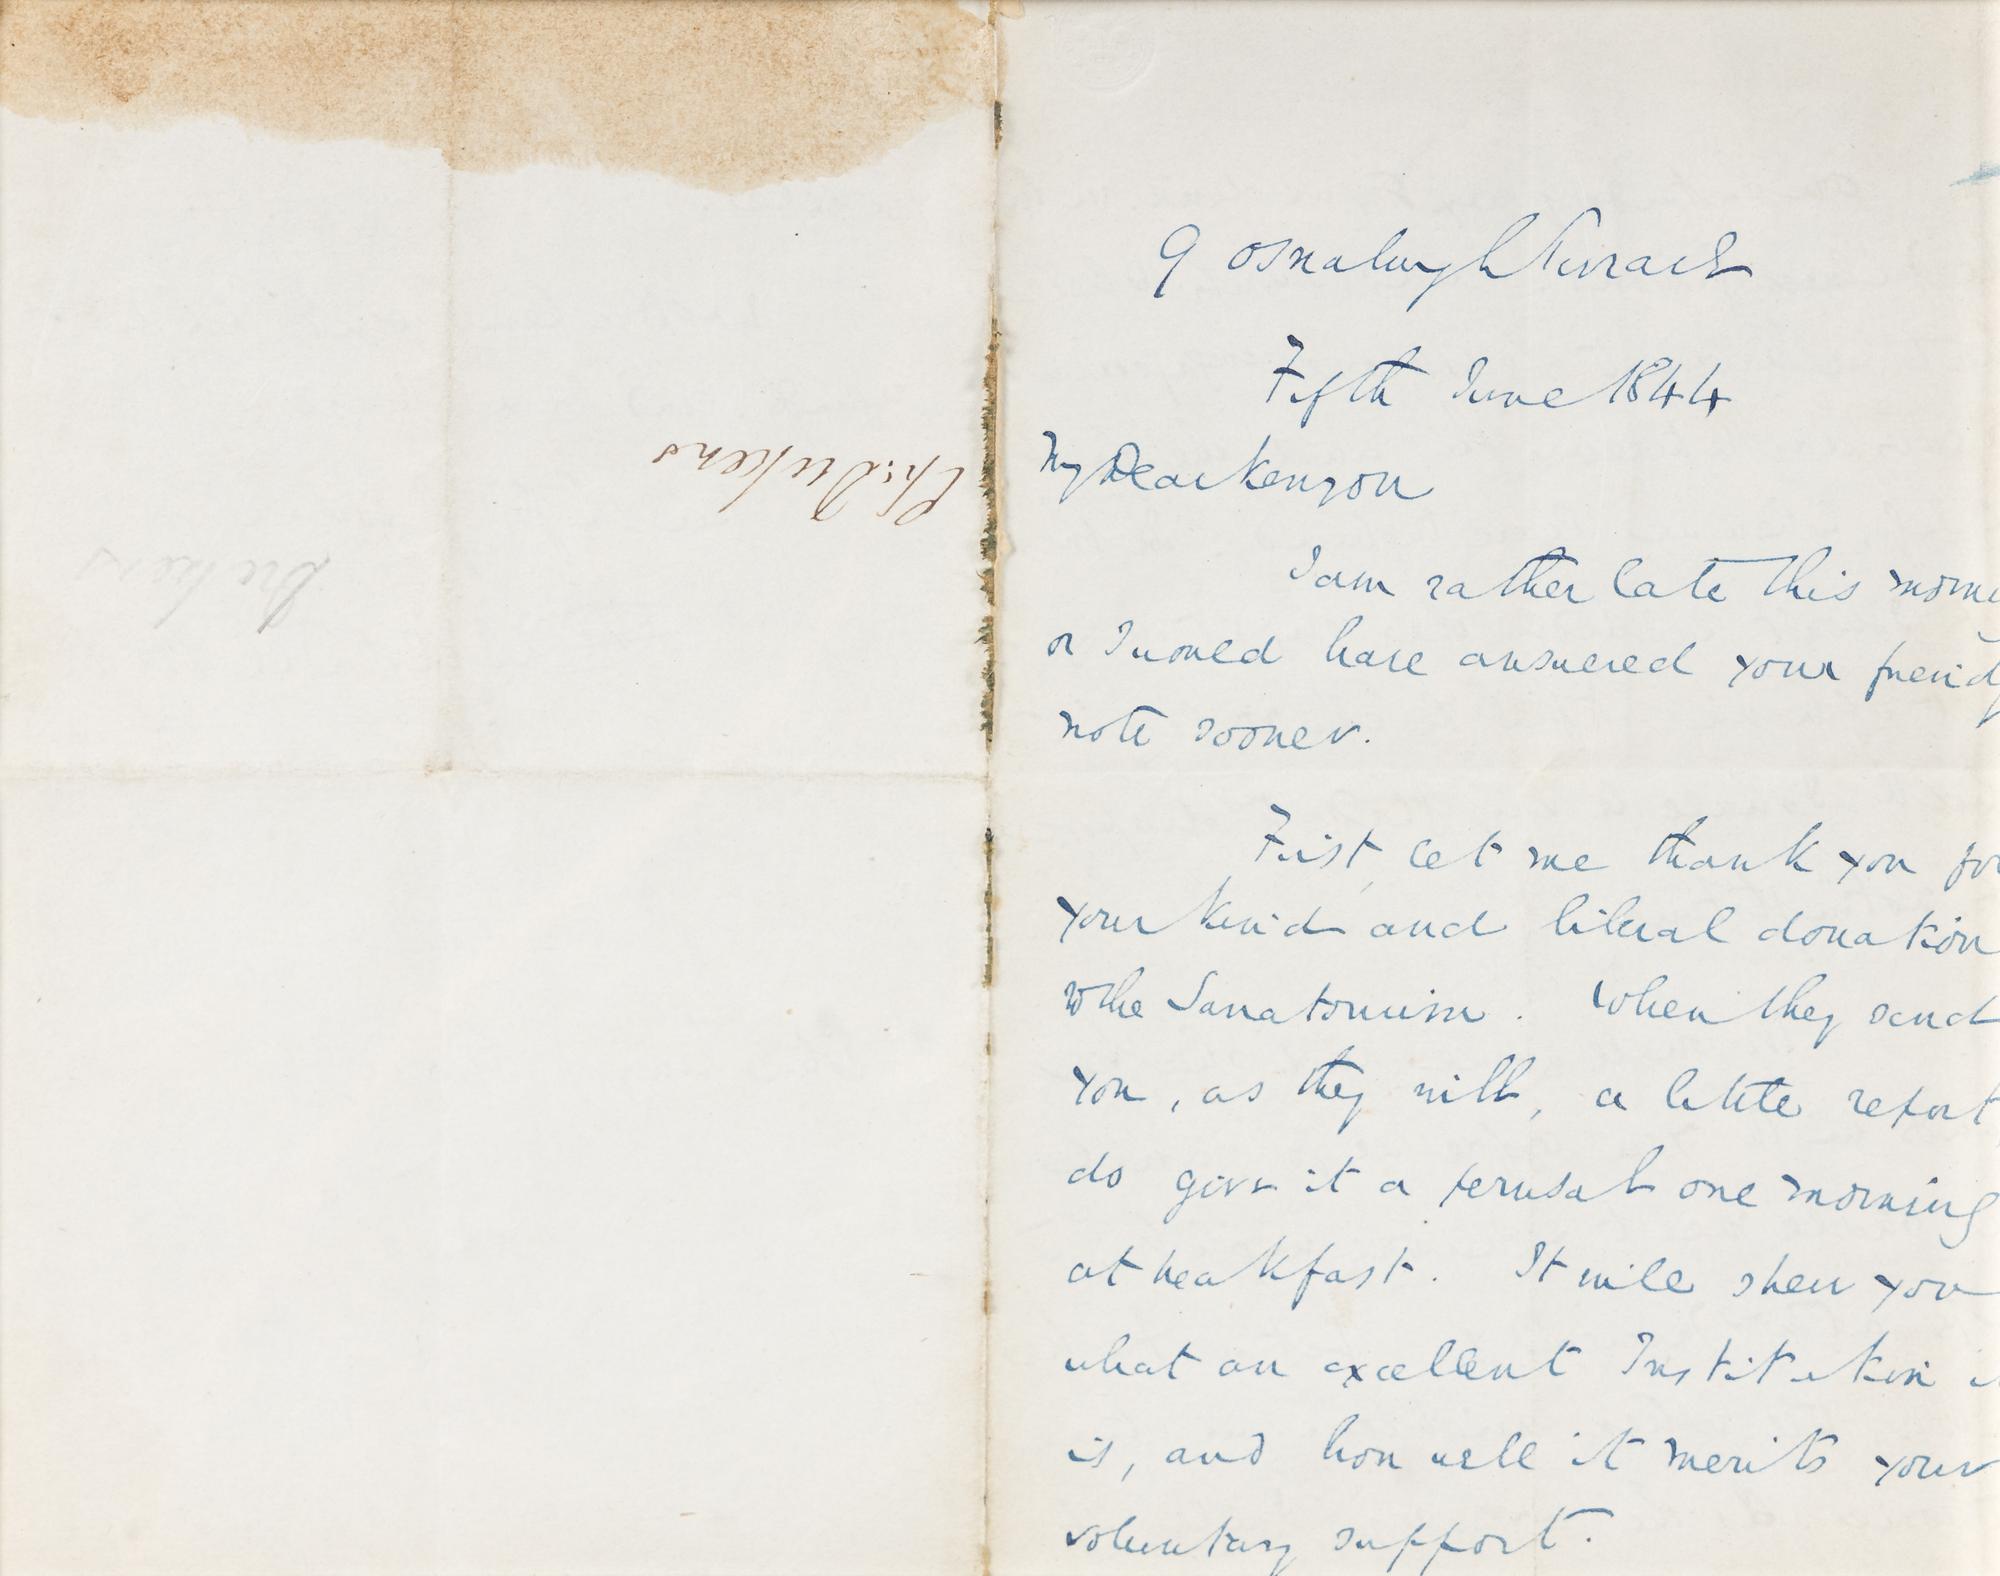 Ch: Dickens
Dickens
9 Osnaburgh Terrace
Fifth June 1844
My Dear Kenyon
I am rather late this morni
or I would have answered your friendly
note sooner.
First, let me thank you for
your kind and liberal donation
to the Sanatorium. When they send
you, as they will, a little report,
do give it a perusal one morning
at breakfast. It will shew you
what an excellent Institution i
is, and how well it merits your
voluntary support.